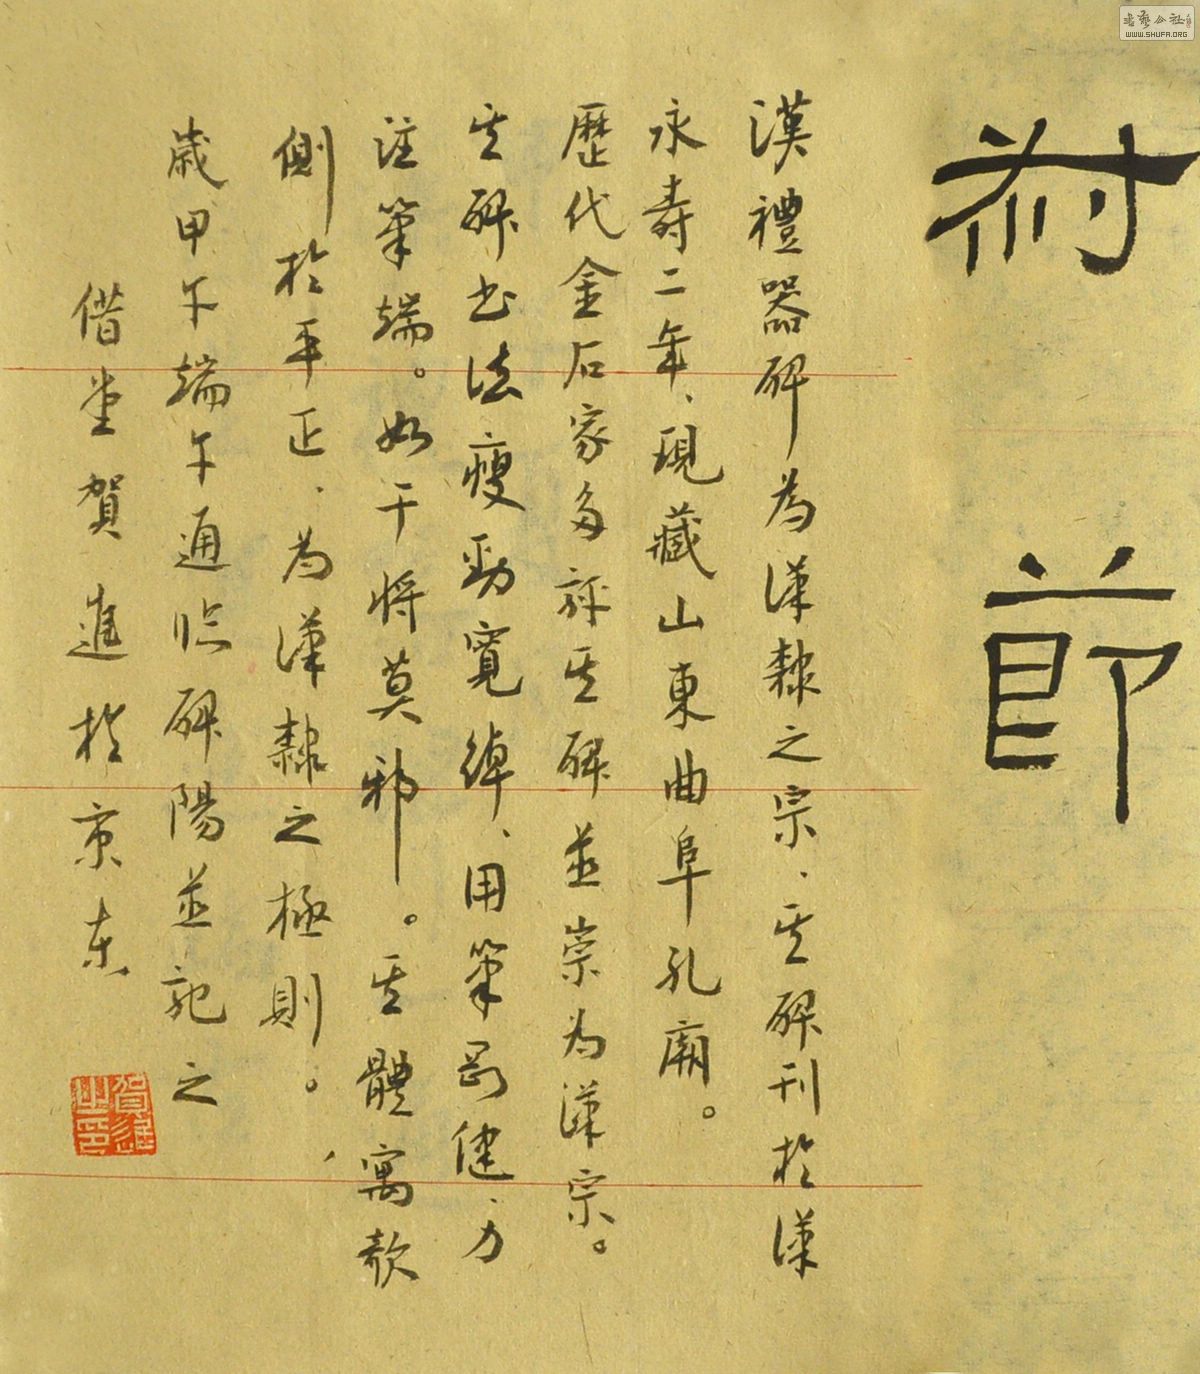 節
漢禮器碑為漢隸之宗、其碑刊於漢
永壽二年、現藏山東曲阜孔廟。
歷代金石家多評其碑並崇為漢宗。
其碑書法瘦勁寬綽、用筆剛健、力
注筆端。如干將莫邪。其體寓欹
側於平正、為漢隸之極則。
歲甲午端午通臨碑陽並記之
借堂賀進於京東
賀進之印
書藝公社
WWW.SHUFA.ORG